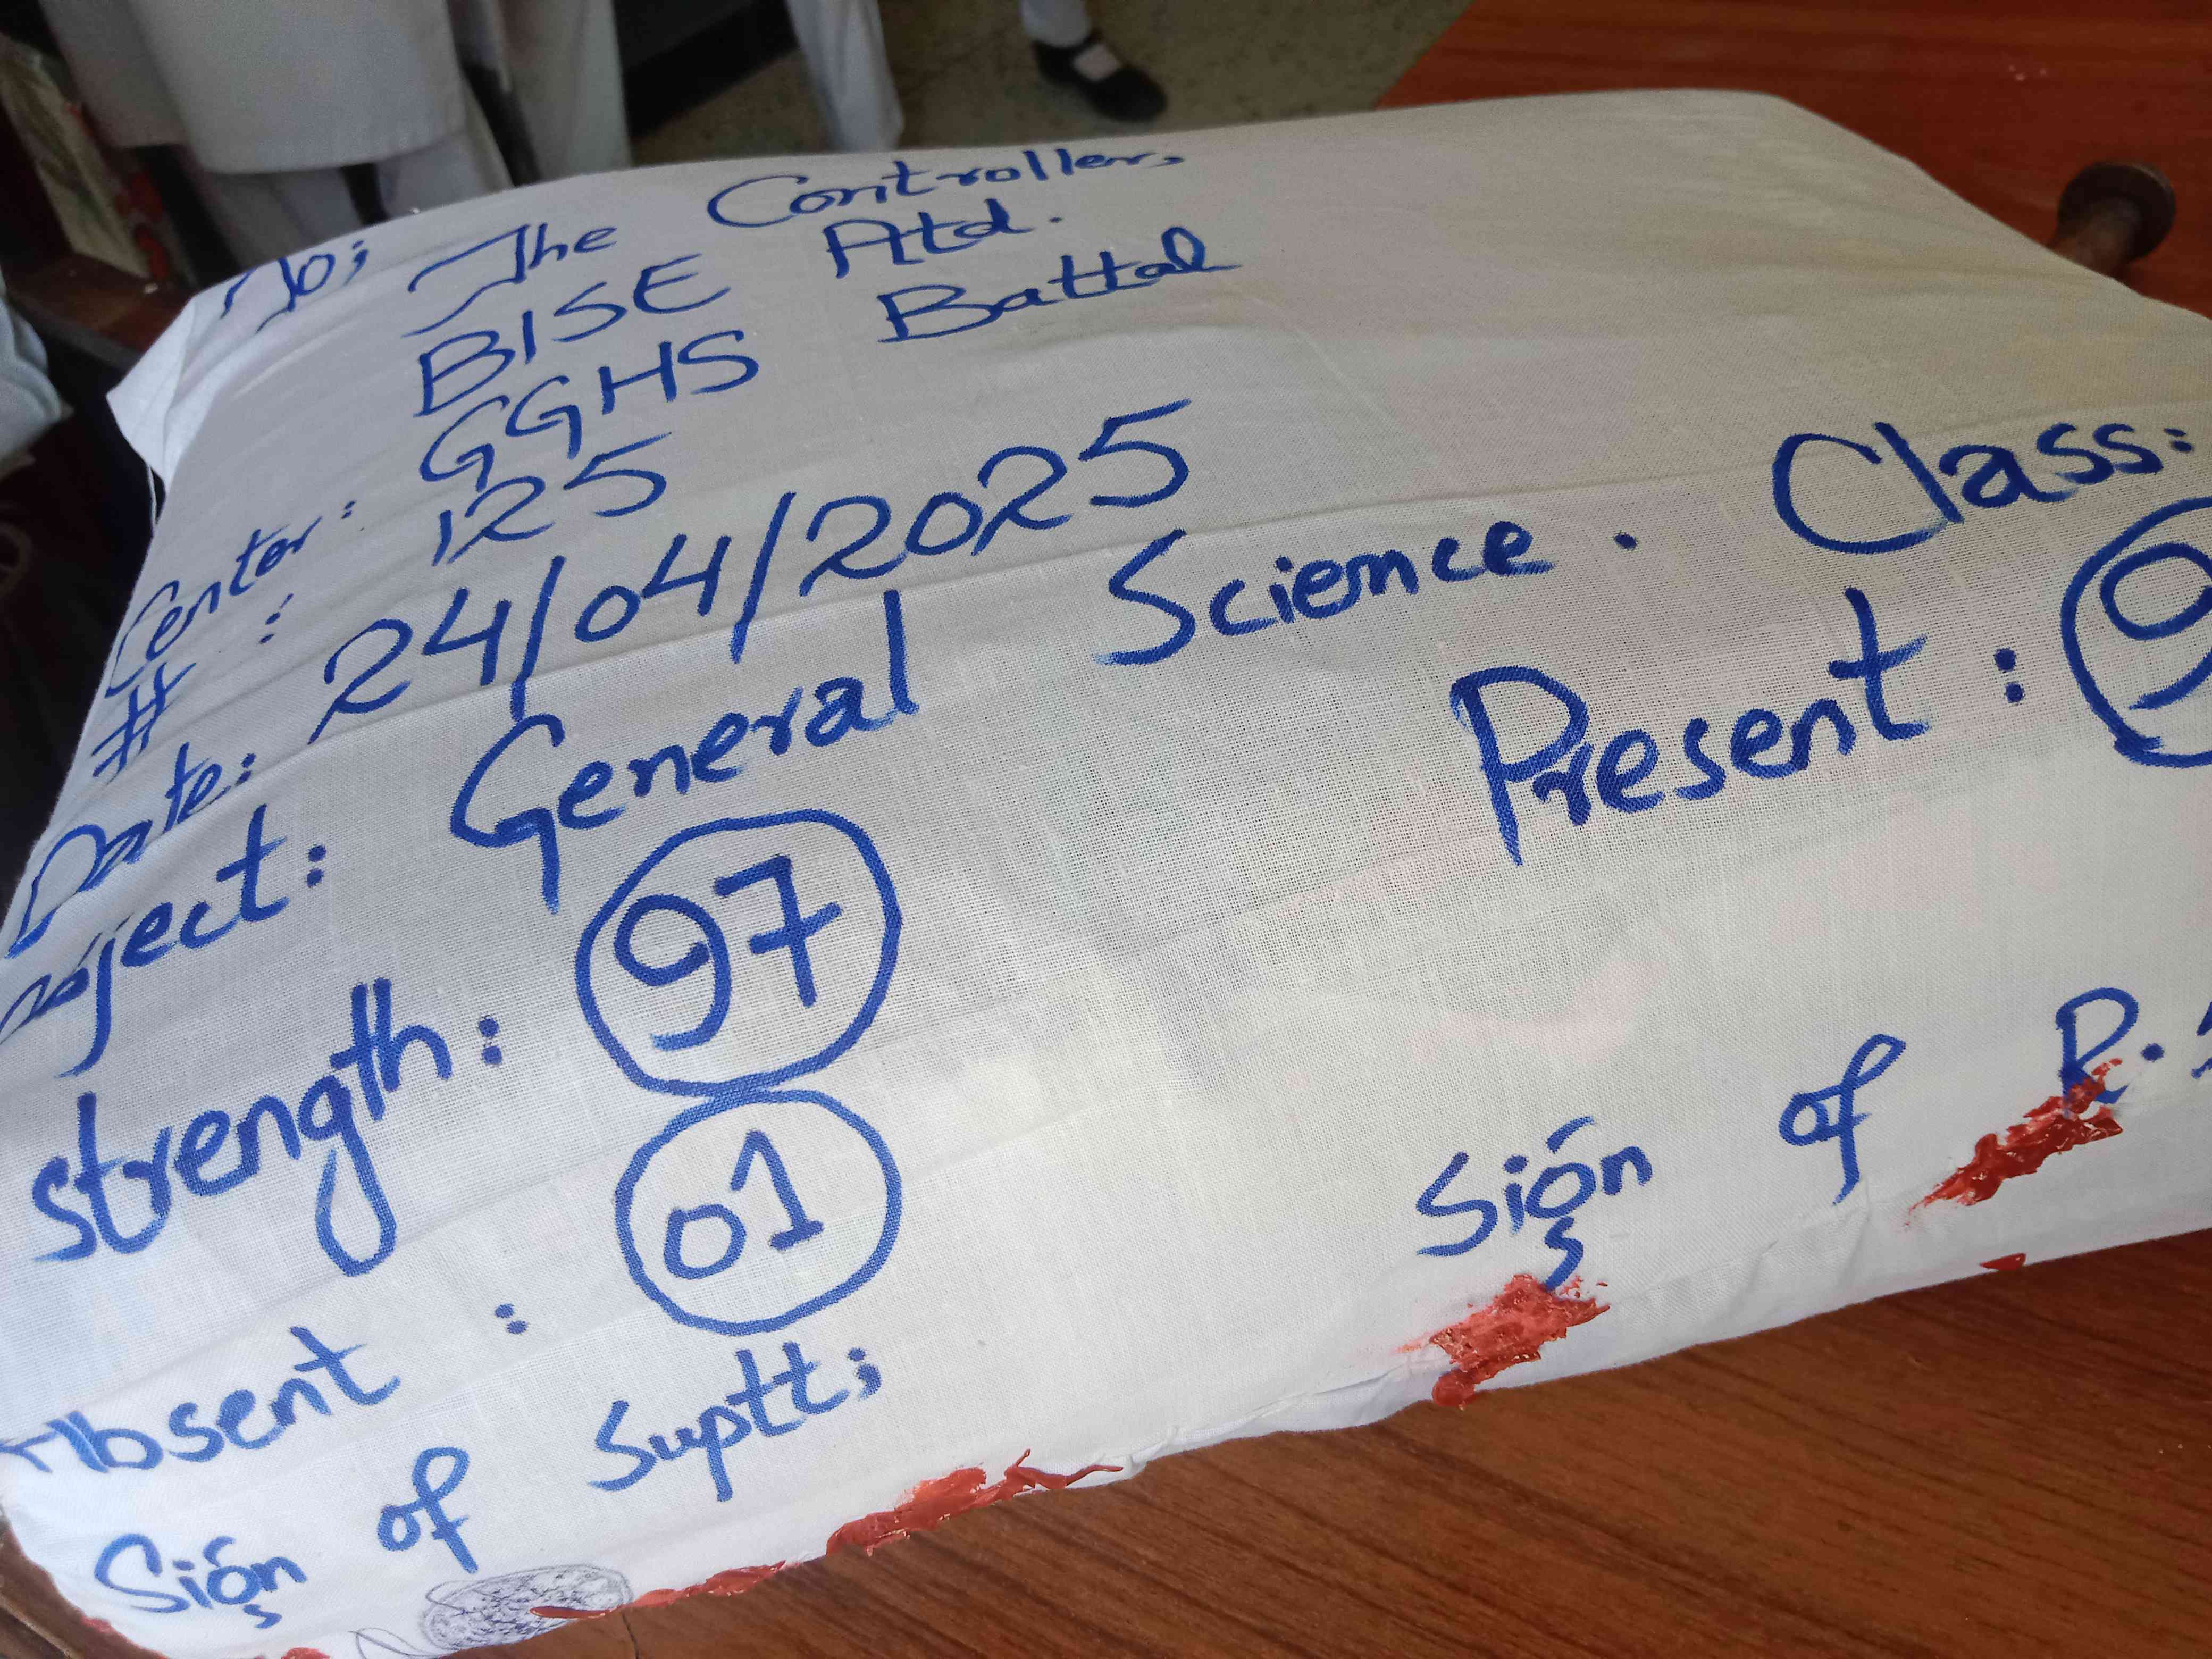 To; The Controller,
BISE Atd.
Center: GGHS Battal
#: 125
Date: 24/04/2025
Subject: General Science. Class:
Strength: 97 Present: 9
Absent: 01
Sign of Suptt; Sign of R.